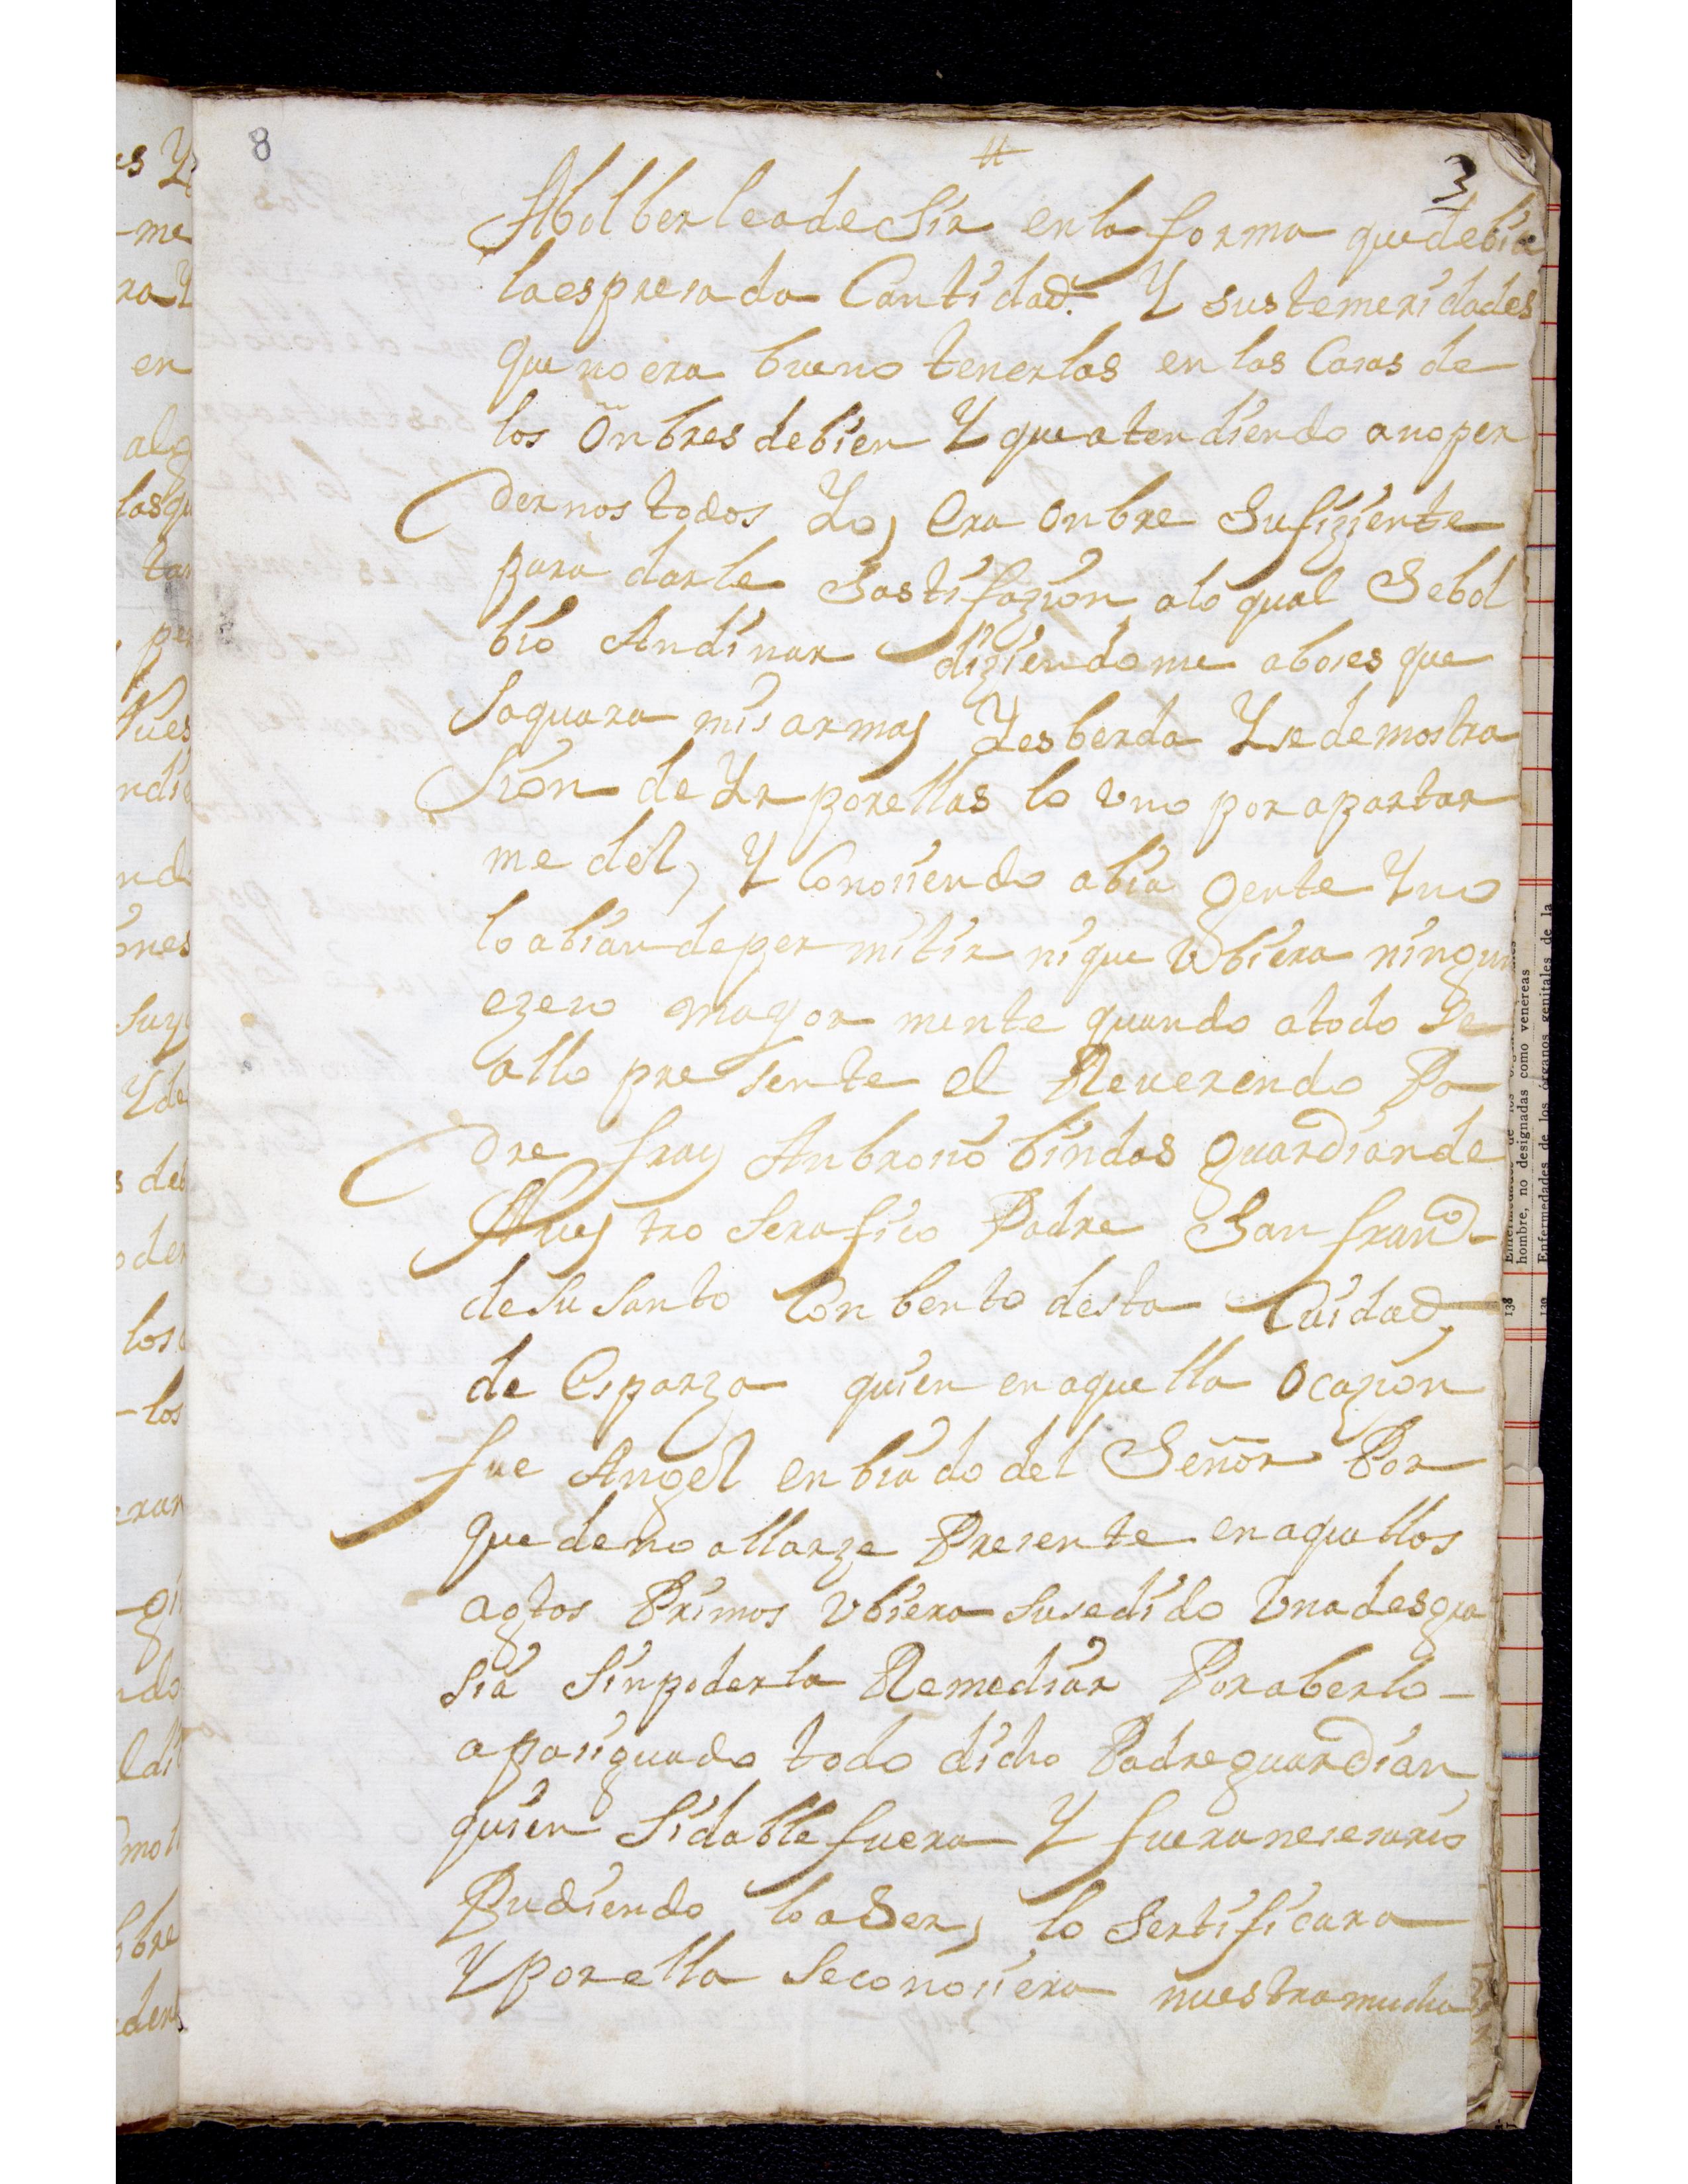 8
3
Abolberle a desir en la forma que debia
la espresada Cantidad. Y sus temeridades
que no era bueno tenerlas en las Casas de
los Onbres de bien Y que atendiendo a no per
dernos todos Yo, era onbre Sufiziente
para darle Sastifazion a lo qual Se bol
bio Andinar diziendome a boses que
Saquara mis armas Y es berda Y se demostra
sion de Yr por ellas lo vno por apartar
me del, Y Conosiendo abia gente Y no
lo abian de permitir ni que Vbiera ningun
ezeso mayor mente quando a todo Se
allo presente el Reuerendo Pa
dre fray Anbrosio bindas guardian de
Nuestro Serafico Padre San franco
de su santo Conbento desta Ciudad
de Esparza quien en aquella Ocazion
fue Angel enbiado del Señor Por
que de no allarze Presente en aquellos
agtos Primos Vbiera susedido Vna desgra
sia sin poderla Remediar Por aberlo
apasiguado todo dicho Padre guardian
quien Si dable fuera Y fuera nesesario
Pudiendo lo aser, lo Sertificara
Y por ella se conosiera nuestra mucha
138
hombre, no designadas como venéreas
Enfermedades de los órganos genitales de la